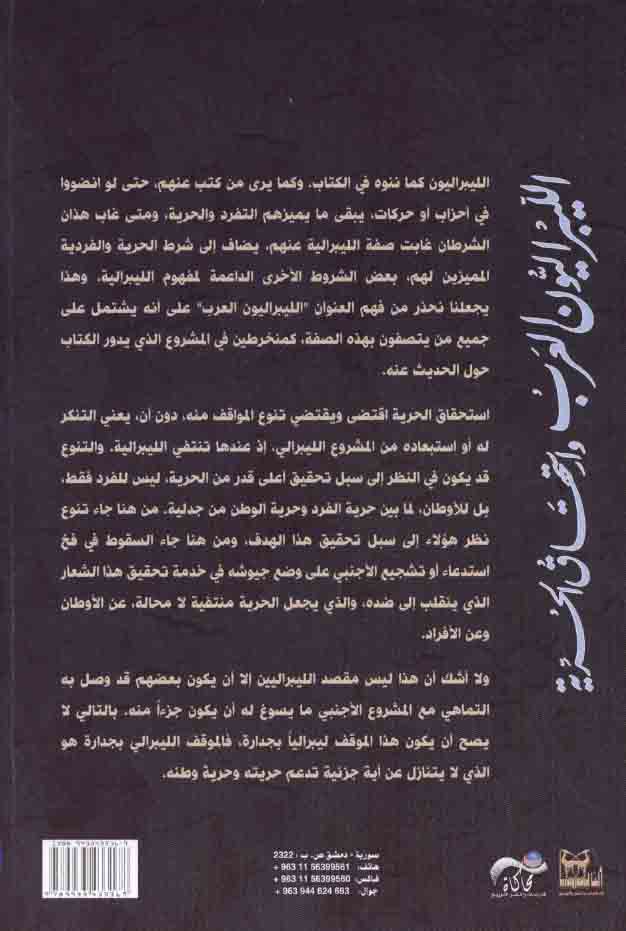 الليبراليون العرب واستحقاق الحرية
الليبراليون كما ننوه في الكتاب. وكما يرى من كتب عنهم، حتى لو انضووا
في أحزاب أو حركات، يبقى ما يميزهم التفرد والحرية، ومتى غاب هذان
الشرطان غابت صفة الليبرالية عنهم، يضاف إلى شرط الحرية والفردية
المميزين لهم، بعض الشروط الأخرى الداعمة لمفهوم الليبرالية. وهذا
يجعلنا نحذر من فهم العنوان "الليبراليون العرب" على أنه يشتمل على
جميع من يتصفون بهذه الصفة، كمنخرطين في المشروع الذي يدور الكتاب
حول الحديث عنه.
استحقاق الحرية اقتضى ويقتضي تنوع المواقف منه، دون أن، يعني التنكر
له أو استبعاده من المشروع الليبرالي، إذ عندها تنتفي الليبرالية. والتنوع
قد يكون في النظر إلى سبل تحقيق أعلى قدر من الحرية، ليس للفرد فقط،
بل للأوطان، لما بين حرية الفرد وحرية الوطن من جدلية. من هنا جاء تنوع
نظر هؤلاء إلى سبل تحقيق هذا الهدف، ومن هنا جاء السقوط في فخ
استدعاء أو تشجيع الأجنبي على وضع جيوشه في خدمة تحقيق هذا الشعار
الذي ينقلب إلى ضده، والذي يجعل الحرية منتفية لا محالة، عن الأوطان
وعن الأفراد.
ولا أشك أن هذا ليس مقصد الليبراليين إلا أن يكون بعضهم قد وصل به
التماهي مع المشروع الأجنبي ما يسوغ له أن يكون جزءاً منه. بالتالي لا
يصح أن يكون هذا الموقف ليبرالياً بجدارة، فالموقف الليبرالي بجدارة هو
الذي لا يتنازل عن أية جزئية تدعم حريته وحرية وطنه.
سورية - دمشق ص. ب : 2322
هاتف: 56399561 11 963 +
فاكس: 56399560 11 963 +
جوال: 693 624 944 963 +
محاكاة